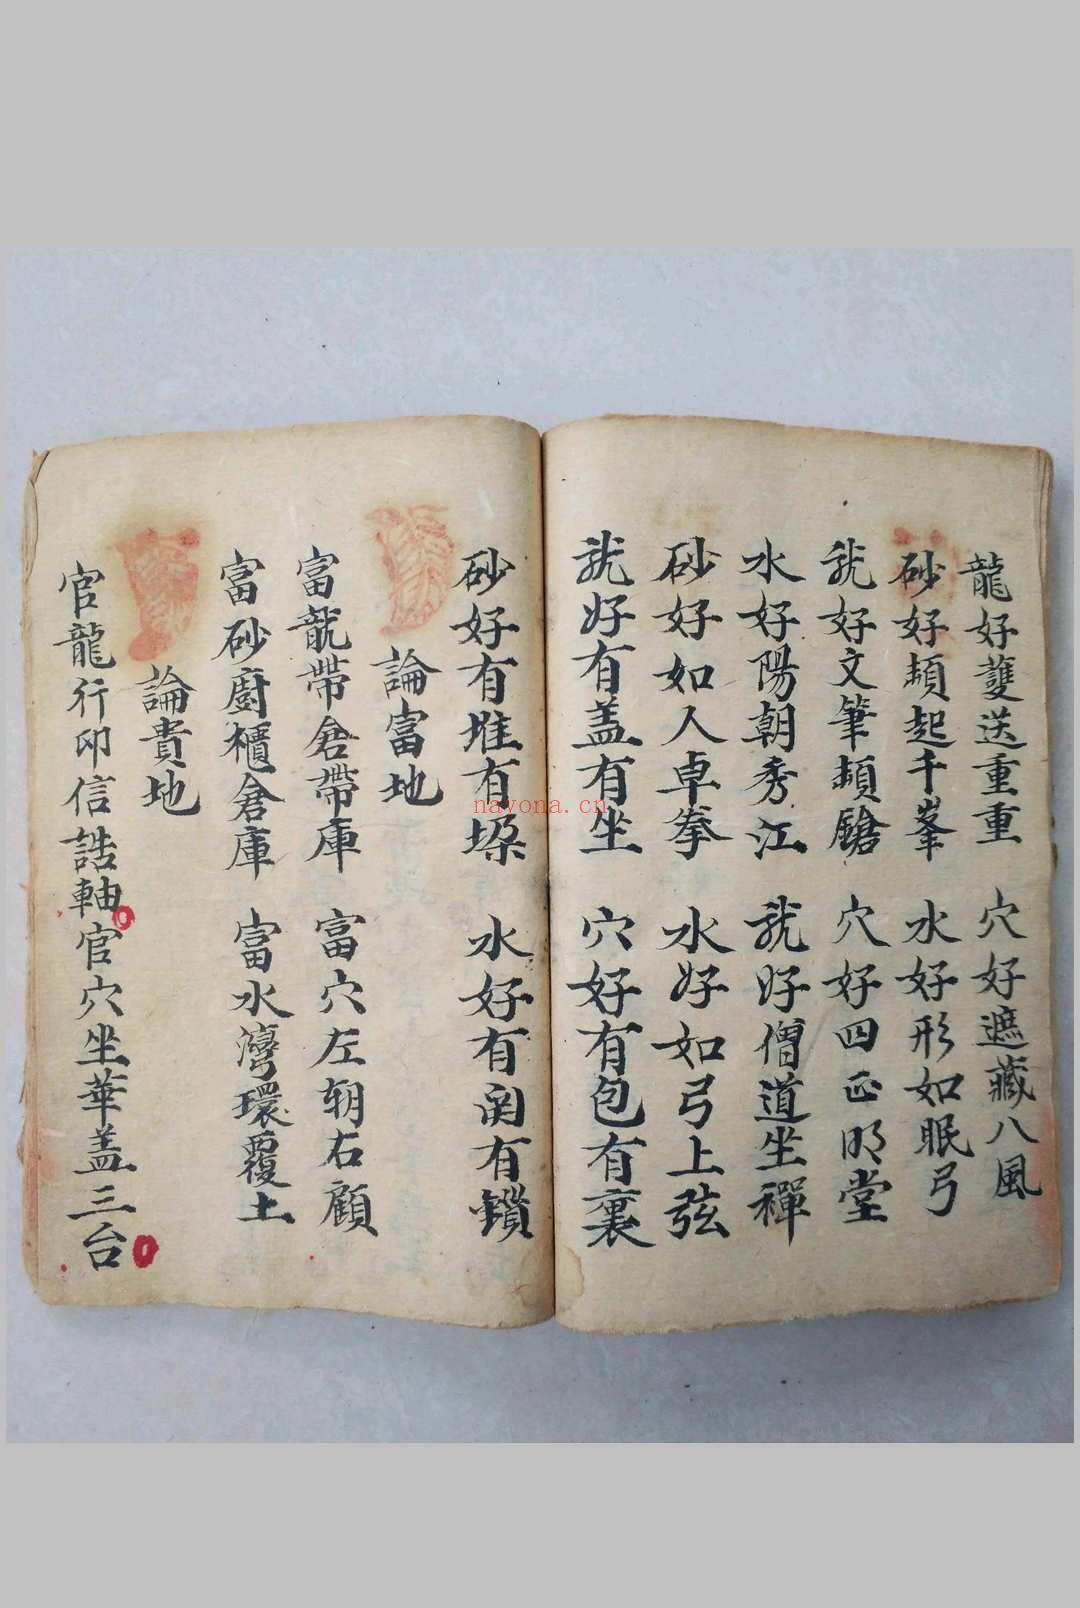 龍好護送重重 穴好遮藏八風
砂好頓起千峯 水好形如眠弓
龍好文筆頓鎗 穴好四正明堂
水好陽朝秀江 龍好僧道坐禪
砂好如人卓拳 水好如弓上弦
龍好有盖有坐 穴好有包有裏
砂好有堆有垜 水好有関有鎖
論富地
富龍帶倉帶庫 富穴左朝右顧
富砂廚櫃倉庫 富水灣環覆土
論貴地
官龍行印信誥軸 官穴坐華盖三台
nayona.cn